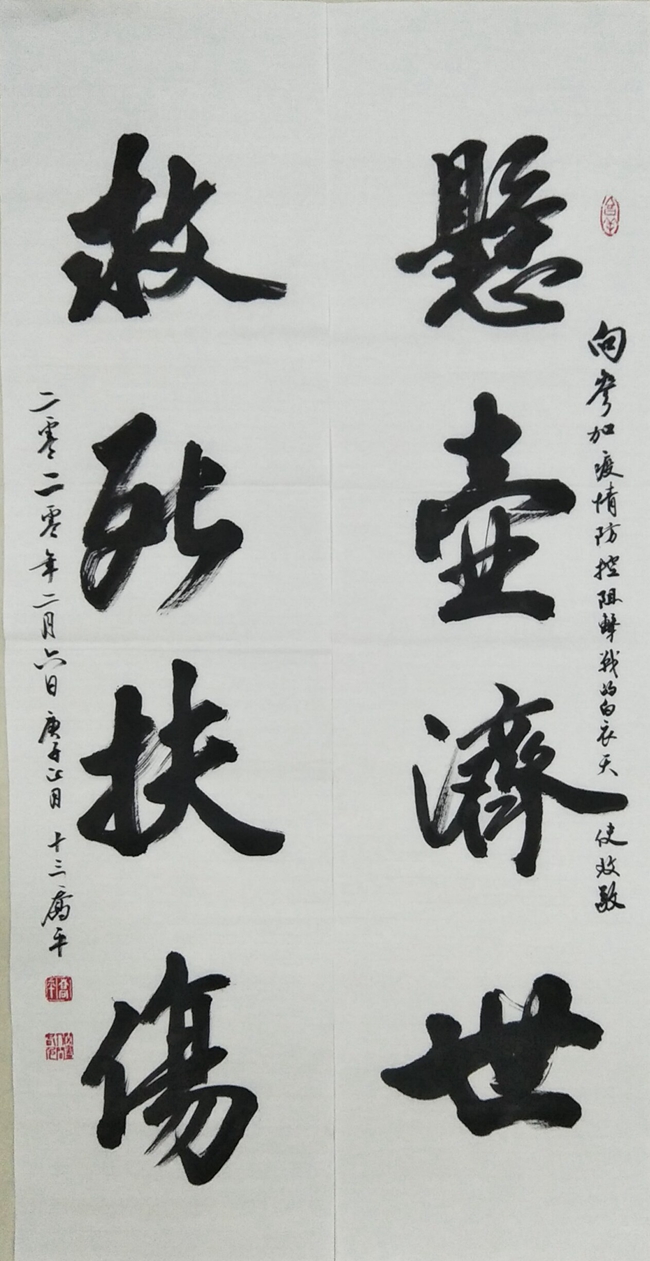 向参加疫情防控阻擊战的白衣天使致敬
懸壺濟世
救死扶傷
二零二零年二月六日 庚子正月十三 喬平